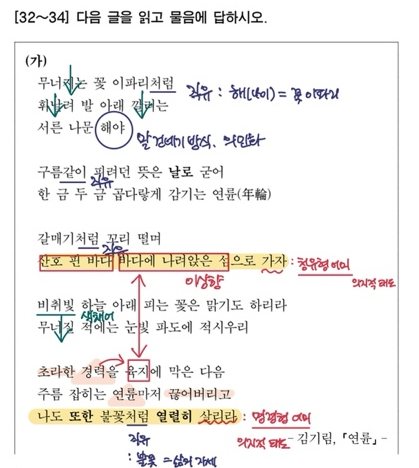 [32~34] 다음 글을 읽고 물음에 답하시오.
(가)
무너지는 꽃 이파리처럼 직유 : 해(나이) = 꽃 이파리
휘날려 발 아래 깔리는
서른 나문 해야
말 건네기 방식, 의인화
구름같이 피려던 뜻은 날로 굳어
직유
한 금 두 금 곱다랗게 감기는 연륜(年輪)
갈매기처럼 꼬리 떨며
직유
산호 핀 바다 바다에 나려앉은 섬으로 가자 : 청유형 어미
이상향 의지적 태도
비취빛 하늘 아래 피는 꽃은 맑기도 하리라
색채어
무너질 적에는 눈빛 파도에 적시우리
초라한 경력을 육지에 막은 다음
주름 잡히는 연륜마저 끊어버리고
나도 또한 불꽃처럼 열렬히 살리라 : 명령형 어미
직유 의지적 태도
: 불꽃 = 삶의 자세
- 김기림, 「연륜」 -